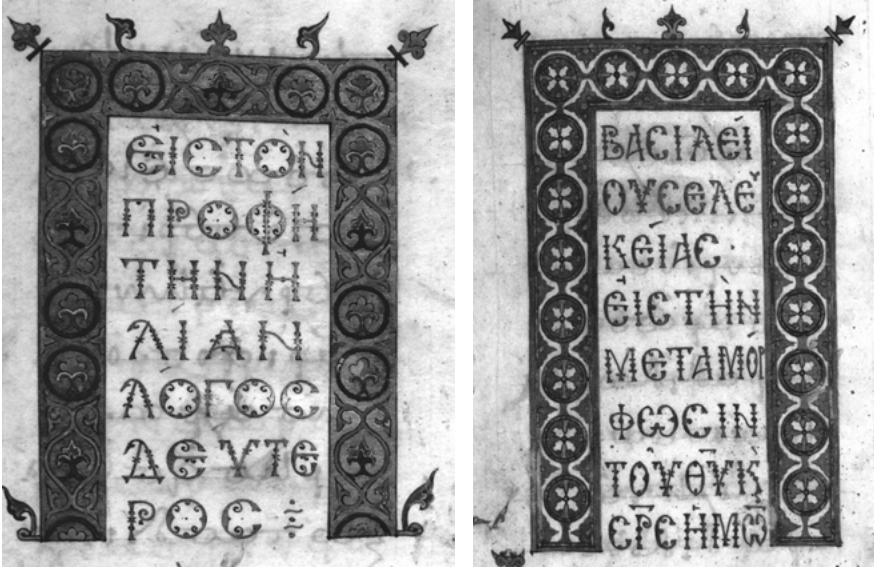 ΕΙϹΤΟΝ
ΠΡΟΦΗ
ΤΗΝΗ
ΛΙΑΝ
ΛΟΓΟϹ
ΔΕΥΤΕ
ΡΟϹ
ΒΑϹΙΛΕΙ
ΟΥϹΕΛΕΥ
ΚΕΙΑϹ
ΕΙϹΤΗΝ
ΜΕΤΑΜΟΡ
ΦΩϹΙΝ
ΤΟΥΘ̅Υ̅Κ
Ϲ̅Ρ̅ϹΗΜΩ̅